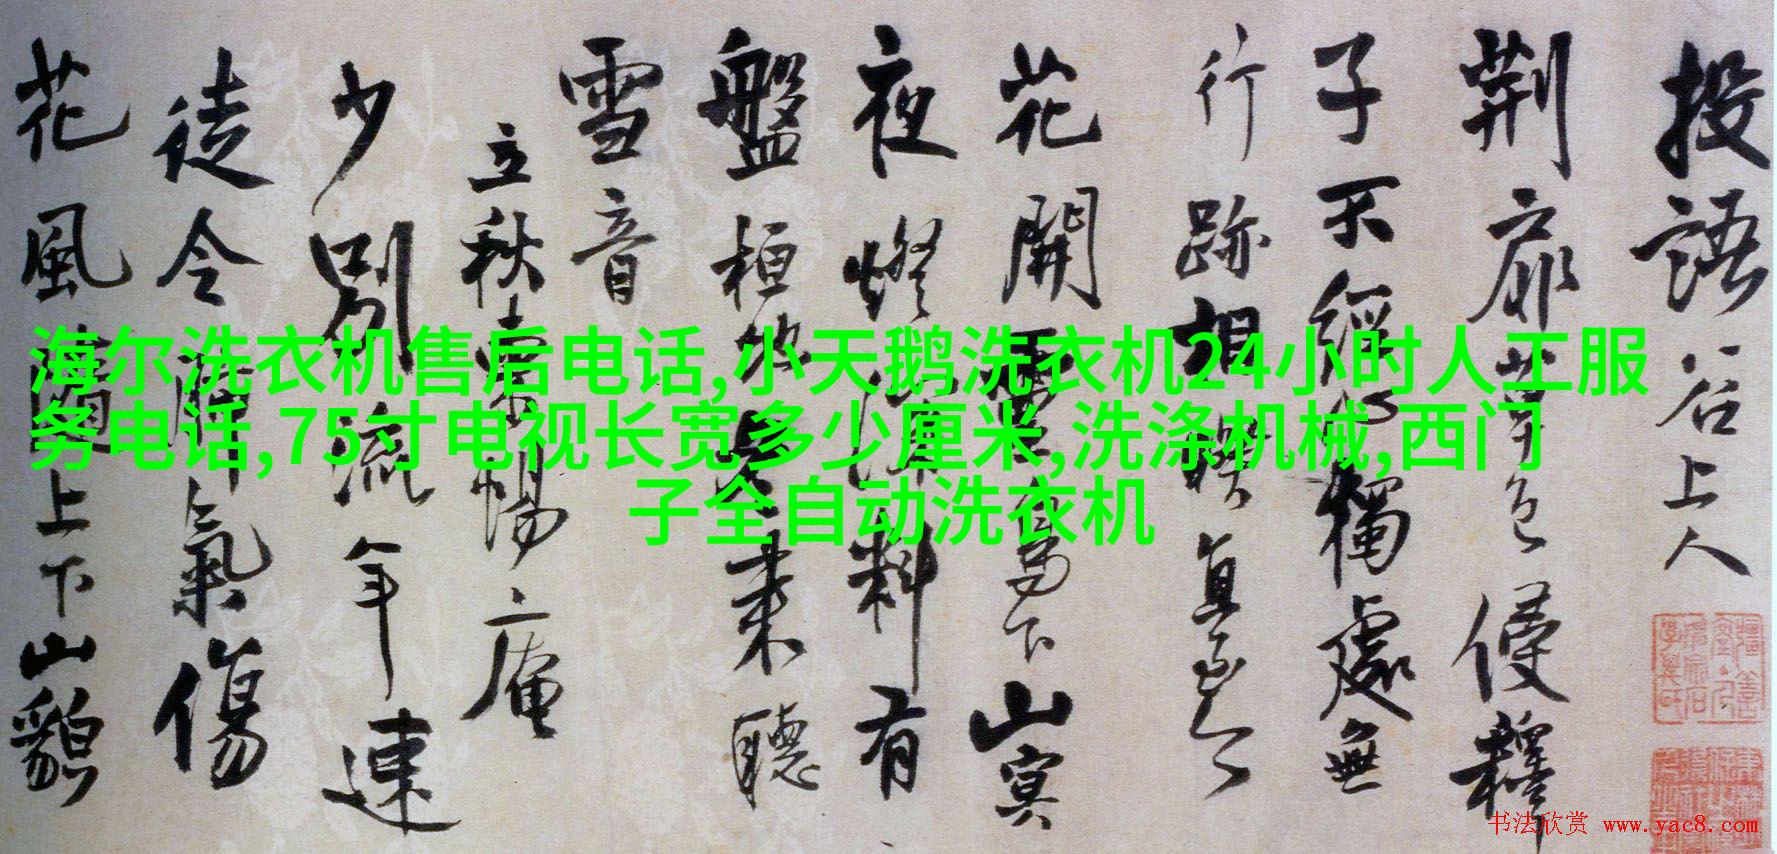 海尔洗衣机售后电话,小天鹅洗衣机24小时人工服
务电话,75寸电视长宽多少厘米,洗涤机械,西门
子全自动洗衣机
投語谷上人
荆扉草色侵釋
子不經心獨處無
行跡相
花開高下山寞
夜燈料有
盤桓來聽
雪音
立秋庵
少別流年速
徒令氣傷
花風上下山貌
书法欣赏 www.yac8.com